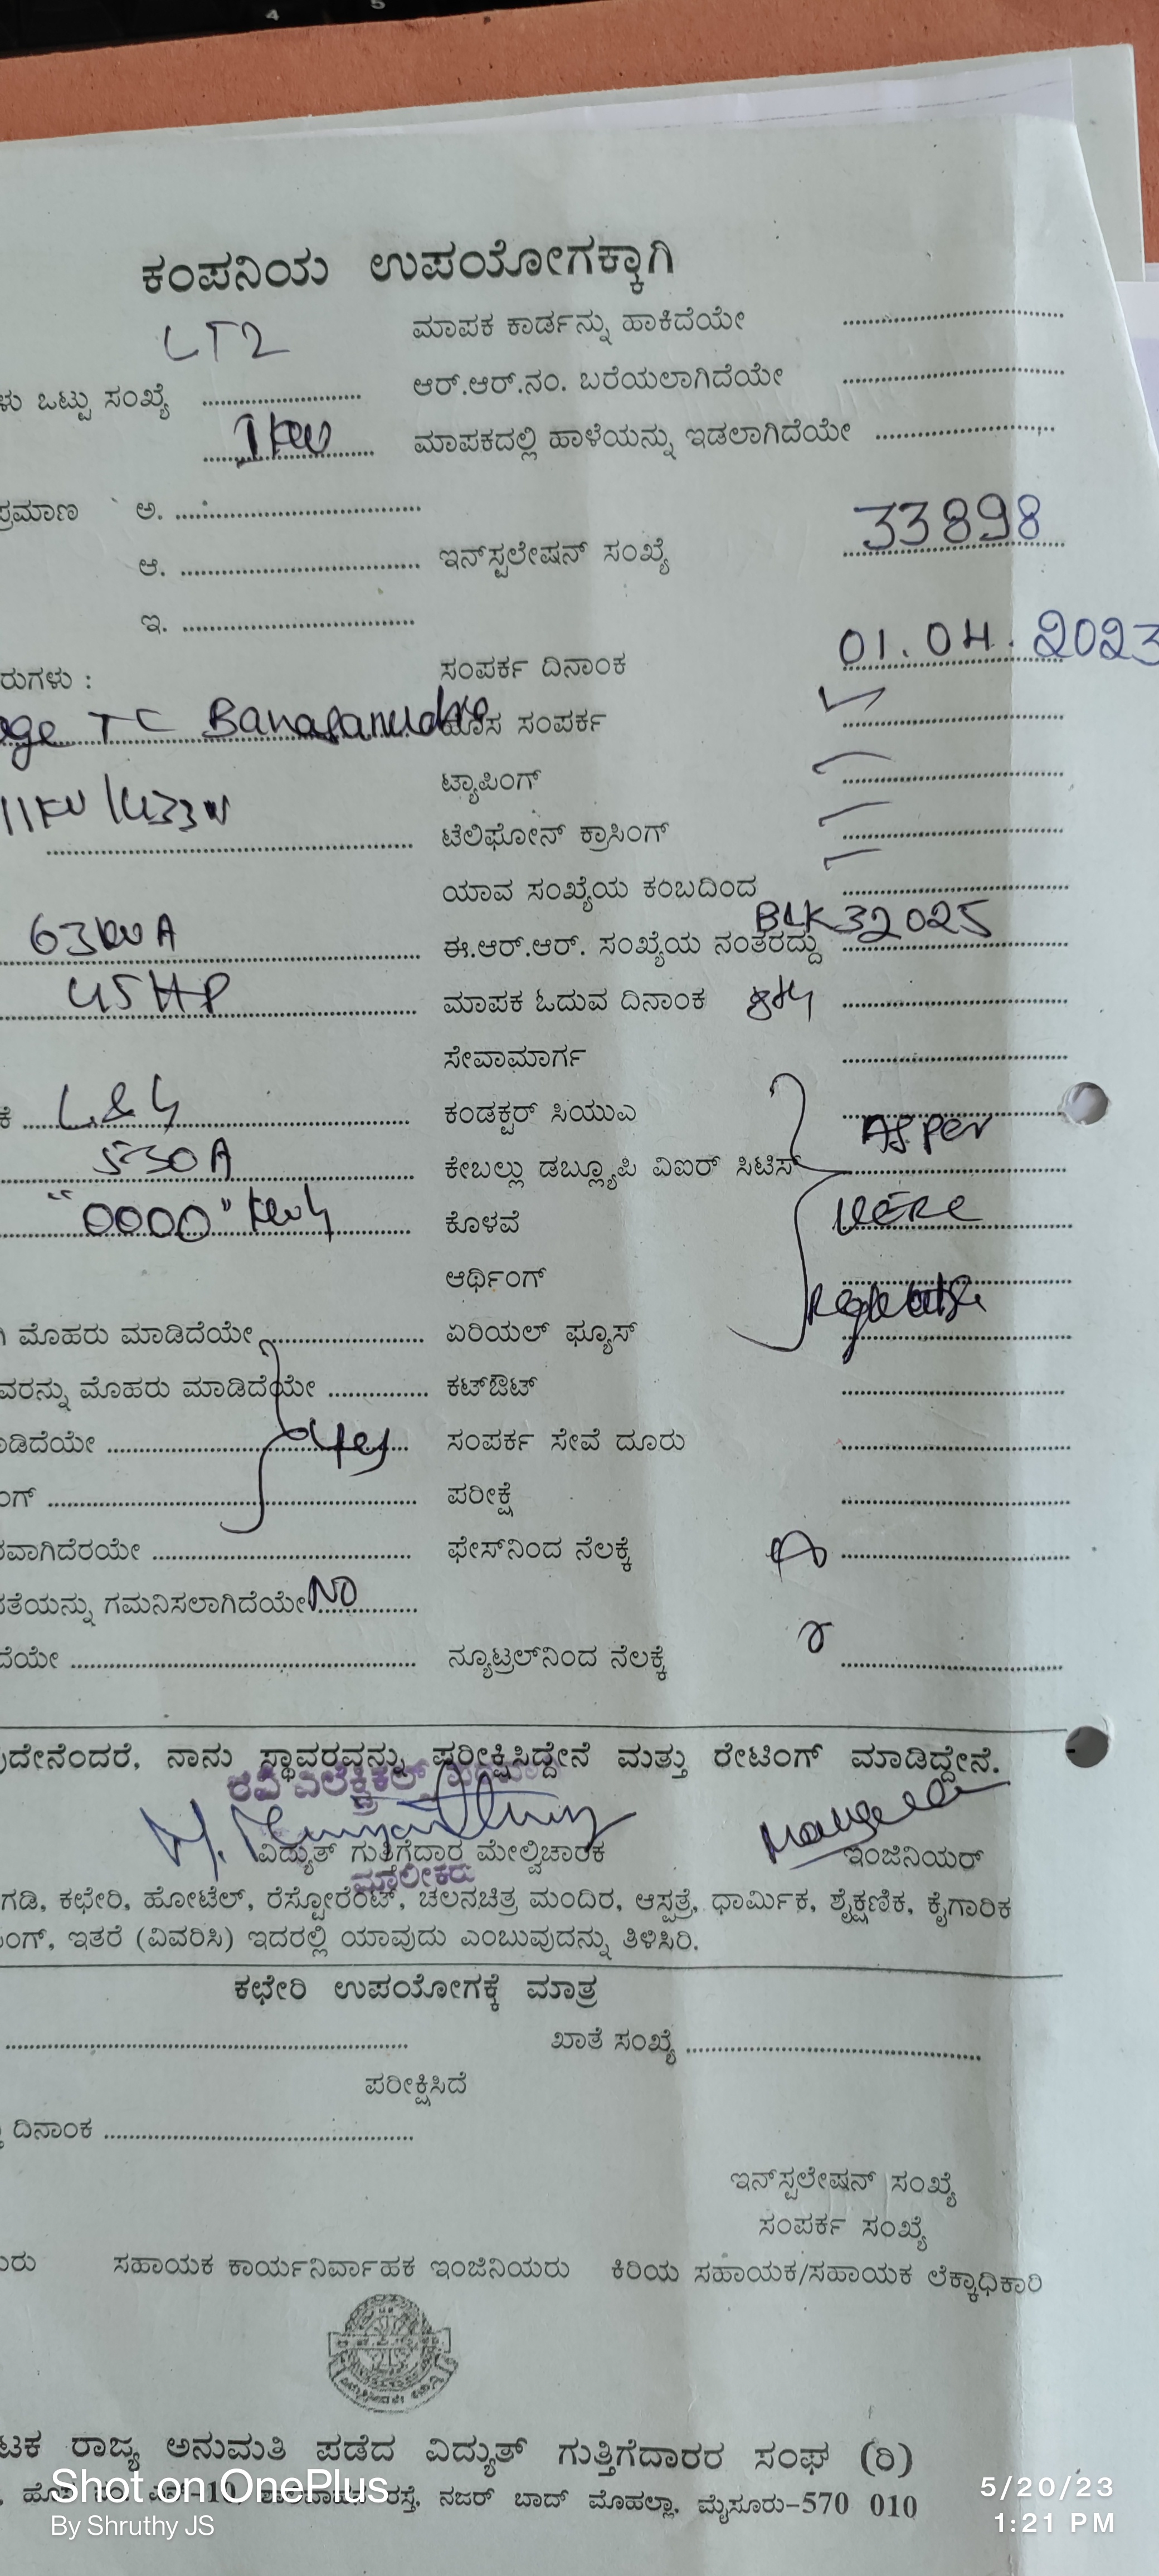 4 5
ಕಂಪನಿಯ ಉಪಯೋಗಕ್ಕಾಗಿ
LT2 ಮಾಪಕ ಕಾರ್ಡನ್ನು ಹಾಕಿದೆಯೇ
ಳು ಒಟ್ಟು ಸಂಖ್ಯೆ ಆರ್.ಆರ್.ನಂ. ಬರೆಯಲಾಗಿದೆಯೇ
1KW ಮಾಪಕದಲ್ಲಿ ಹಾಳೆಯನ್ನು ಇಡಲಾಗಿದೆಯೇ
ಪ್ರಮಾಣ ಅ.
ಆ. ಇನ್‌ಸ್ಟಲೇಷನ್ ಸಂಖ್ಯೆ 33898
ಇ.
ರುಗಳು : ಸಂಪರ್ಕ ದಿನಾಂಕ 01.04.2023
age TC ಹೊಸ ಸಂಪರ್ಕ ✓
ಟ್ಯಾಪಿಂಗ್
11KV/433V ಟೆಲಿಫೋನ್ ಕ್ರಾಸಿಂಗ್
ಯಾವ ಸಂಖ್ಯೆಯ ಕಂಬದಿಂದ
63KVA ಈ.ಆರ್.ಆರ್. ಸಂಖ್ಯೆಯ ನಂತರದ್ದು BLK32025
45HP ಮಾಪಕ ಓದುವ ದಿನಾಂಕ 8th
ಸೇವಾಮಾರ್ಗ
ಕೆ L&G ಕಂಡಕ್ಟರ್ ಸಿಯುಎ
5-30A ಕೇಬಲ್ಲು ಡಬ್ಲ್ಯೂಪಿ ವಿಐರ್ ಸಿಟಿಸ್ As per
"0000" kwh ಕೊಳವೆ
ಆರ್ಥಿಂಗ್
ಮೊಹರು ಮಾಡಿದೆಯೇ ಏರಿಯಲ್ ಫ್ಯೂಸ್
ವರನ್ನು ಮೊಹರು ಮಾಡಿದೆಯೇ ಕಟ್‌ಔಟ್
ಾಡಿದೆಯೇ yes ಸಂಪರ್ಕ ಸೇವೆ ದೂರು
ಂಗ್ ಪರೀಕ್ಷೆ
ರವಾಗಿದೆರಯೇ ಫೇಸ್‌ನಿಂದ ನೆಲಕ್ಕೆ
ತೆಯನ್ನು ಗಮನಿಸಲಾಗಿದೆಯೇ NO
ದೆಯೇ ನ್ಯೂಟ್ರಲ್‌ನಿಂದ ನೆಲಕ್ಕೆ
ುದೇನೆಂದರೆ, ನಾನು ಸ್ಥಾವರವನ್ನು ಪರೀಕ್ಷಿಸಿದ್ದೇನೆ ಮತ್ತು ರೇಟಿಂಗ್ ಮಾಡಿದ್ದೇನೆ.
ರವಿ ಎಲೆಕ್ಟ್ರಿಕಲ್ಸ್
ವಿದ್ಯುತ್ ಗುತ್ತಿಗೆದಾರ ಮೇಲ್ವಿಚಾರಕ ಇಂಜಿನಿಯರ್
ಮಾಲೀಕರು
ಗಡಿ, ಕಛೇರಿ, ಹೋಟೆಲ್, ರೆಸ್ಟೋರೆಂಟ್, ಚಲನಚಿತ್ರ ಮಂದಿರ, ಆಸ್ಪತ್ರೆ, ಧಾರ್ಮಿಕ, ಶೈಕ್ಷಣಿಕ, ಕೈಗಾರಿಕ
ಂಗ್, ಇತರೆ (ವಿವರಿಸಿ) ಇದರಲ್ಲಿ ಯಾವುದು ಎಂಬುವುದನ್ನು ತಿಳಿಸಿರಿ.
ಕಛೇರಿ ಉಪಯೋಗಕ್ಕೆ ಮಾತ್ರ
ಖಾತೆ ಸಂಖ್ಯೆ
ಪರೀಕ್ಷಿಸಿದೆ
ದಿನಾಂಕ
ಇನ್‌ಸ್ಟಲೇಷನ್ ಸಂಖ್ಯೆ
ಸಂಪರ್ಕ ಸಂಖ್ಯೆ
ರು ಸಹಾಯಕ ಕಾರ್ಯನಿರ್ವಾಹಕ ಇಂಜಿನಿಯರು ಕಿರಿಯ ಸಹಾಯಕ/ಸಹಾಯಕ ಲೆಕ್ಕಾಧಿಕಾರಿ
ಟಕ ರಾಜ್ಯ ಅನುಮತಿ ಪಡೆದ ವಿದ್ಯುತ್ ಗುತ್ತಿಗೆದಾರರ ಸಂಘ (ರಿ)
ರಸ್ತೆ, ನಜರ್ ಬಾದ್ ಮೊಹಲ್ಲಾ, ಮೈಸೂರು-570 010
Shot on OnePlus
By Shruthy JS
5/20/23
1:21 PM